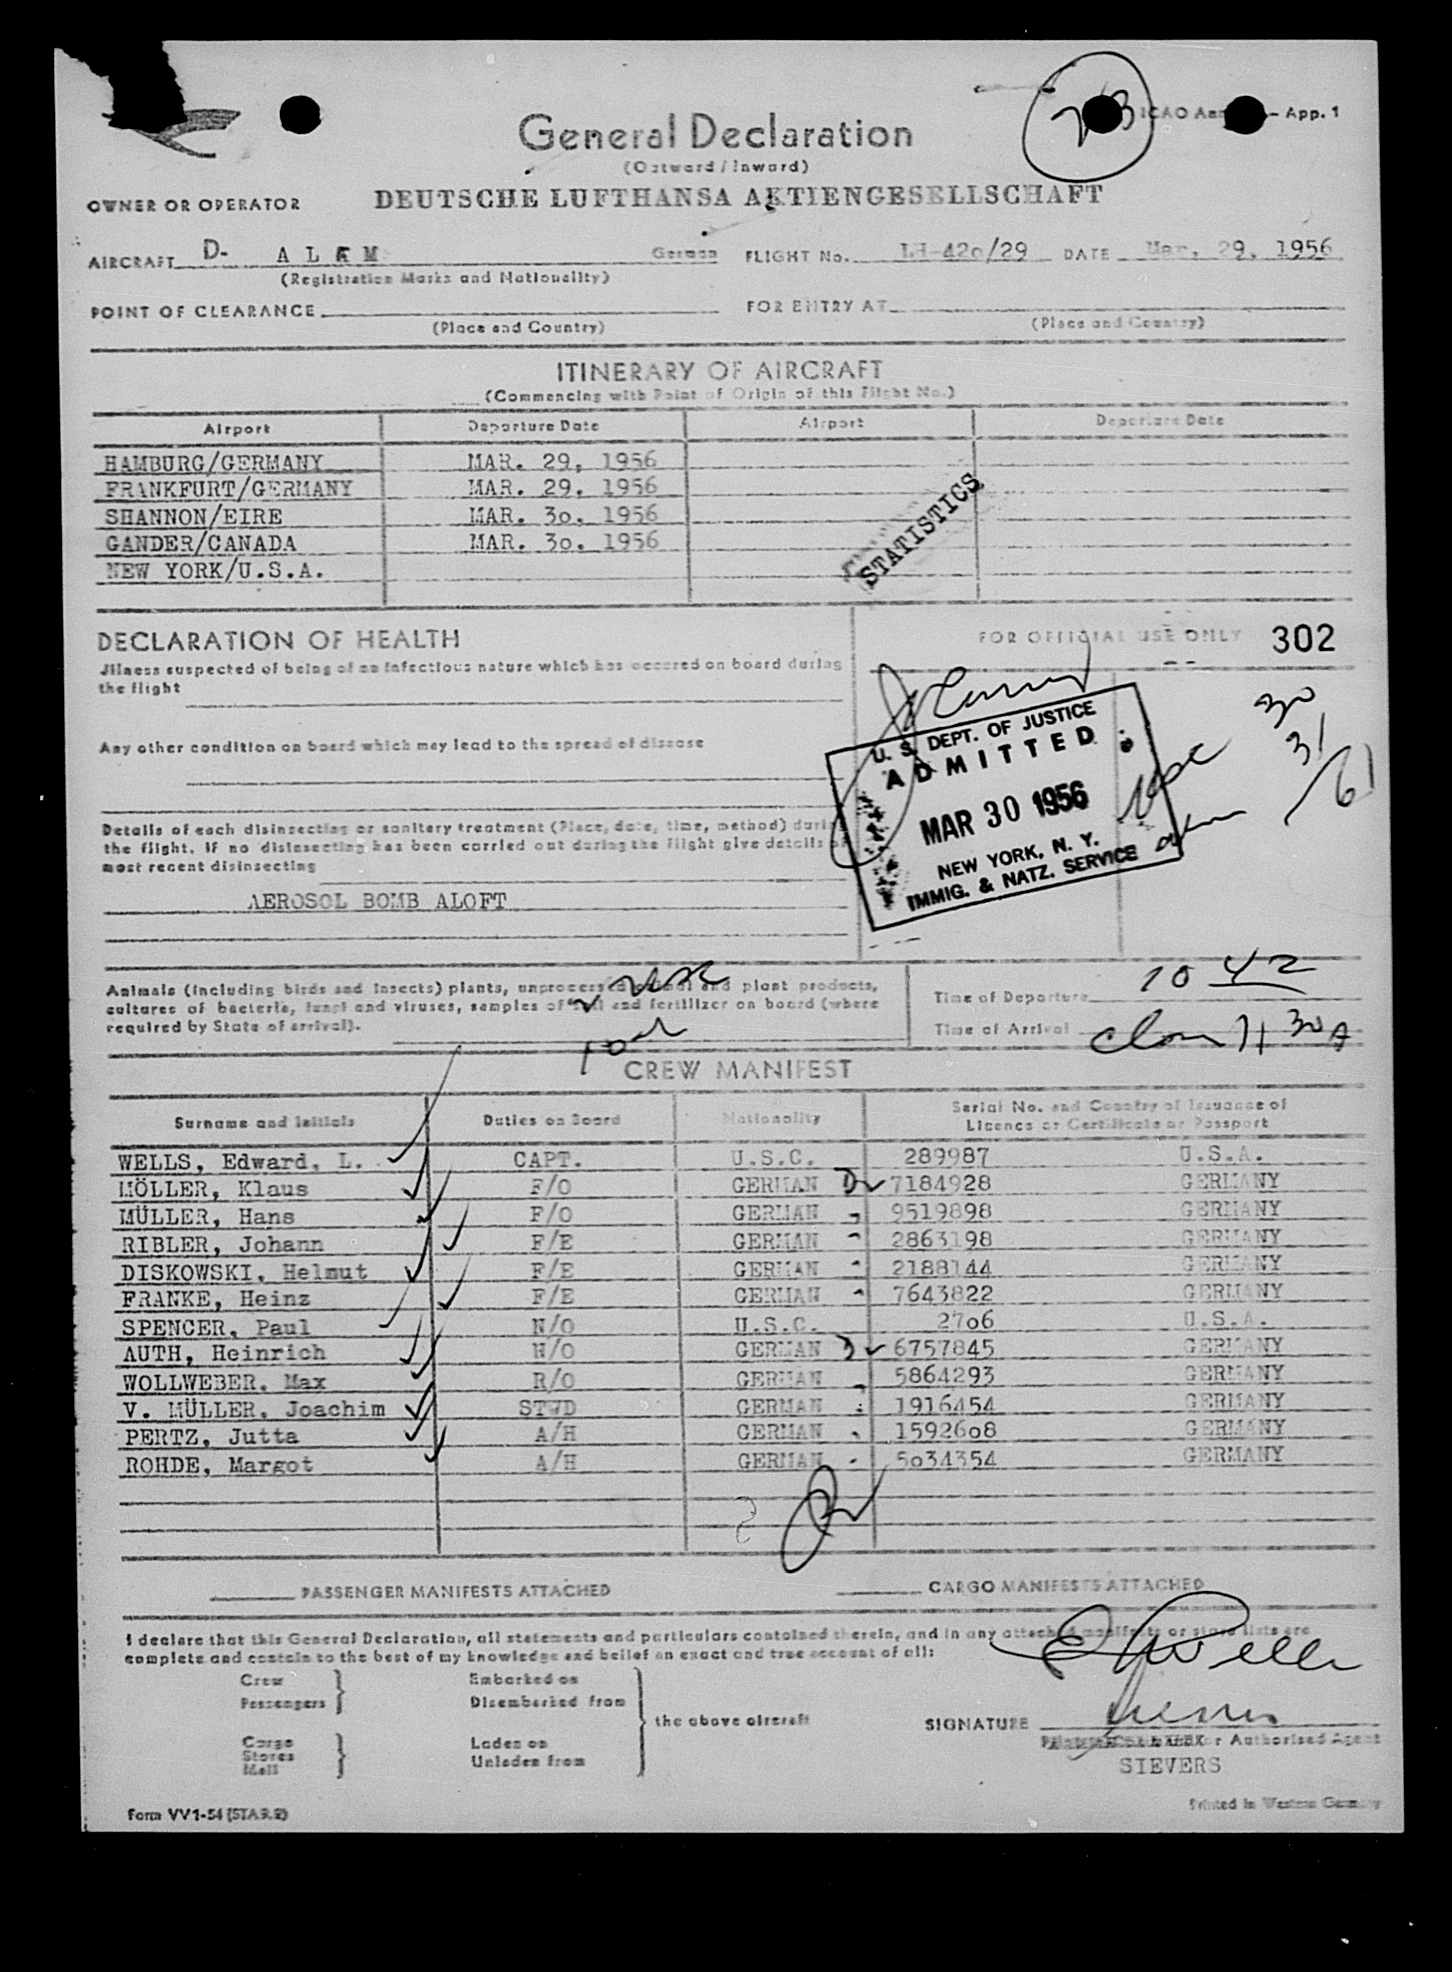 ICAO - App. 1
General Declaration
(Outward / Inward)
OWNER OR OPERATOR DEUTSCHE LUFTHANSA AKTIENGESELLSCHAFT
AIRCRAFT D- A L E M German FLIGHT No. LH-42o/29 DATE Mar. 29. 1956
(Registration Marks and Nationality)
POINT OF CLEARANCE FOR ENTRY AT
(Place and Country) (Place and Country)
ITINERARY OF AIRCRAFT
(Commencing with Point of Origin of this Flight No.)
Airport Departure Date Airport Departure Date
HAMBURG/GERMANY MAR. 29. 1956
FRANKFURT/GERMANY MAR. 29. 1956
SHANNON/EIRE MAR. 3o. 1956
GANDER/CANADA MAR. 3o. 1956
NEW YORK/U.S.A.
STATISTICS
DECLARATION OF HEALTH
FOR OFFICIAL USE ONLY 302
Illness suspected of being of an infectious nature which has occured on board during
the flight
Any other condition on board which may lead to the spread of disease
U. S. DEPT. OF JUSTICE
ADMITTED
MAR 30 1956
NEW YORK, N. Y.
IMMIG. & NATZ. SERVICE
30
31
/61
Details of each disinsecting or sanitary treatment (Place, date, time, method) during
the flight. If no disinsecting has been carried out during the flight give details of
most recent disinsecting
AEROSOL BOMB ALOFT
Animals (including birds and insects) plants, unprocessed animal and plant products,
cultures of bacteria, fungi and viruses, samples of soil and fertilizer on board (where
required by State of arrival).
Time of Departure 10 42
Time of Arrival 11 30 A
CREW MANIFEST
Surname and Initials Duties on Board Nationality Serial No. and Country of Issuance of
Licence or Certificate or Passport
WELLS, Edward. L. CAPT. U.S.C. 289987 U.S.A.
MÖLLER, Klaus F/O GERMAN 7184928 GERMANY
MÜLLER, Hans F/O GERMAN 9519898 GERMANY
RIBLER, Johann F/E GERMAN 2863198 GERMANY
DISKOWSKI. Helmut F/E GERMAN 2188144 GERMANY
FRANKE, Heinz F/E GERMAN 7643822 GERMANY
SPENCER. Paul N/O U.S.C. 27o6 U.S.A.
AUTH, Heinrich N/O GERMAN 6757845 GERMANY
WOLLWEBER. Max R/O GERMAN 5864293 GERMANY
V. MÜLLER. Joachim STWD GERMAN 1916454 GERMANY
PERTZ, Jutta A/H GERMAN 15926o8 GERMANY
ROHDE, Margot A/H GERMAN 5o34354 GERMANY
PASSENGER MANIFESTS ATTACHED CARGO MANIFESTS ATTACHED
I declare that this General Declaration, all statements and particulars contained therein, and in any attached manifests or store lists are
complete and contain to the best of my knowledge and belief an exact and true account of all:
Crew Embarked on
Passengers Disembarked from
the above aircraft
Cargo Laden on
Stores
Mail Unladen from
E Wells
SIGNATURE
or Authorised Agent
SIEVERS
Form VV1-54 (STAR.2)
Printed in Western Germany